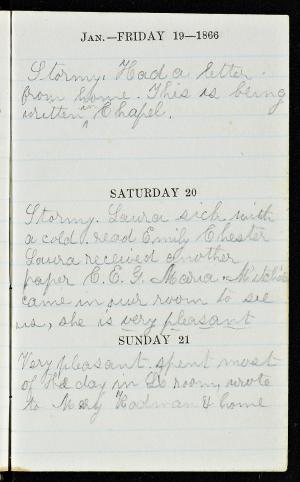 JAN.—FRIDAY 19—1866
Stormy. Had a letter
from home. This is being
written in Chapel.
SATURDAY 20
Stormy. Laura sick with
a cold. read Emily Chester
Laura received another
paper C. E. G. Maria Mitchel
came in our room to see
us, she is very pleasant
SUNDAY 21
Very pleasant. spent most
of the day in Ds room, wrote
to Mary Hadman & home